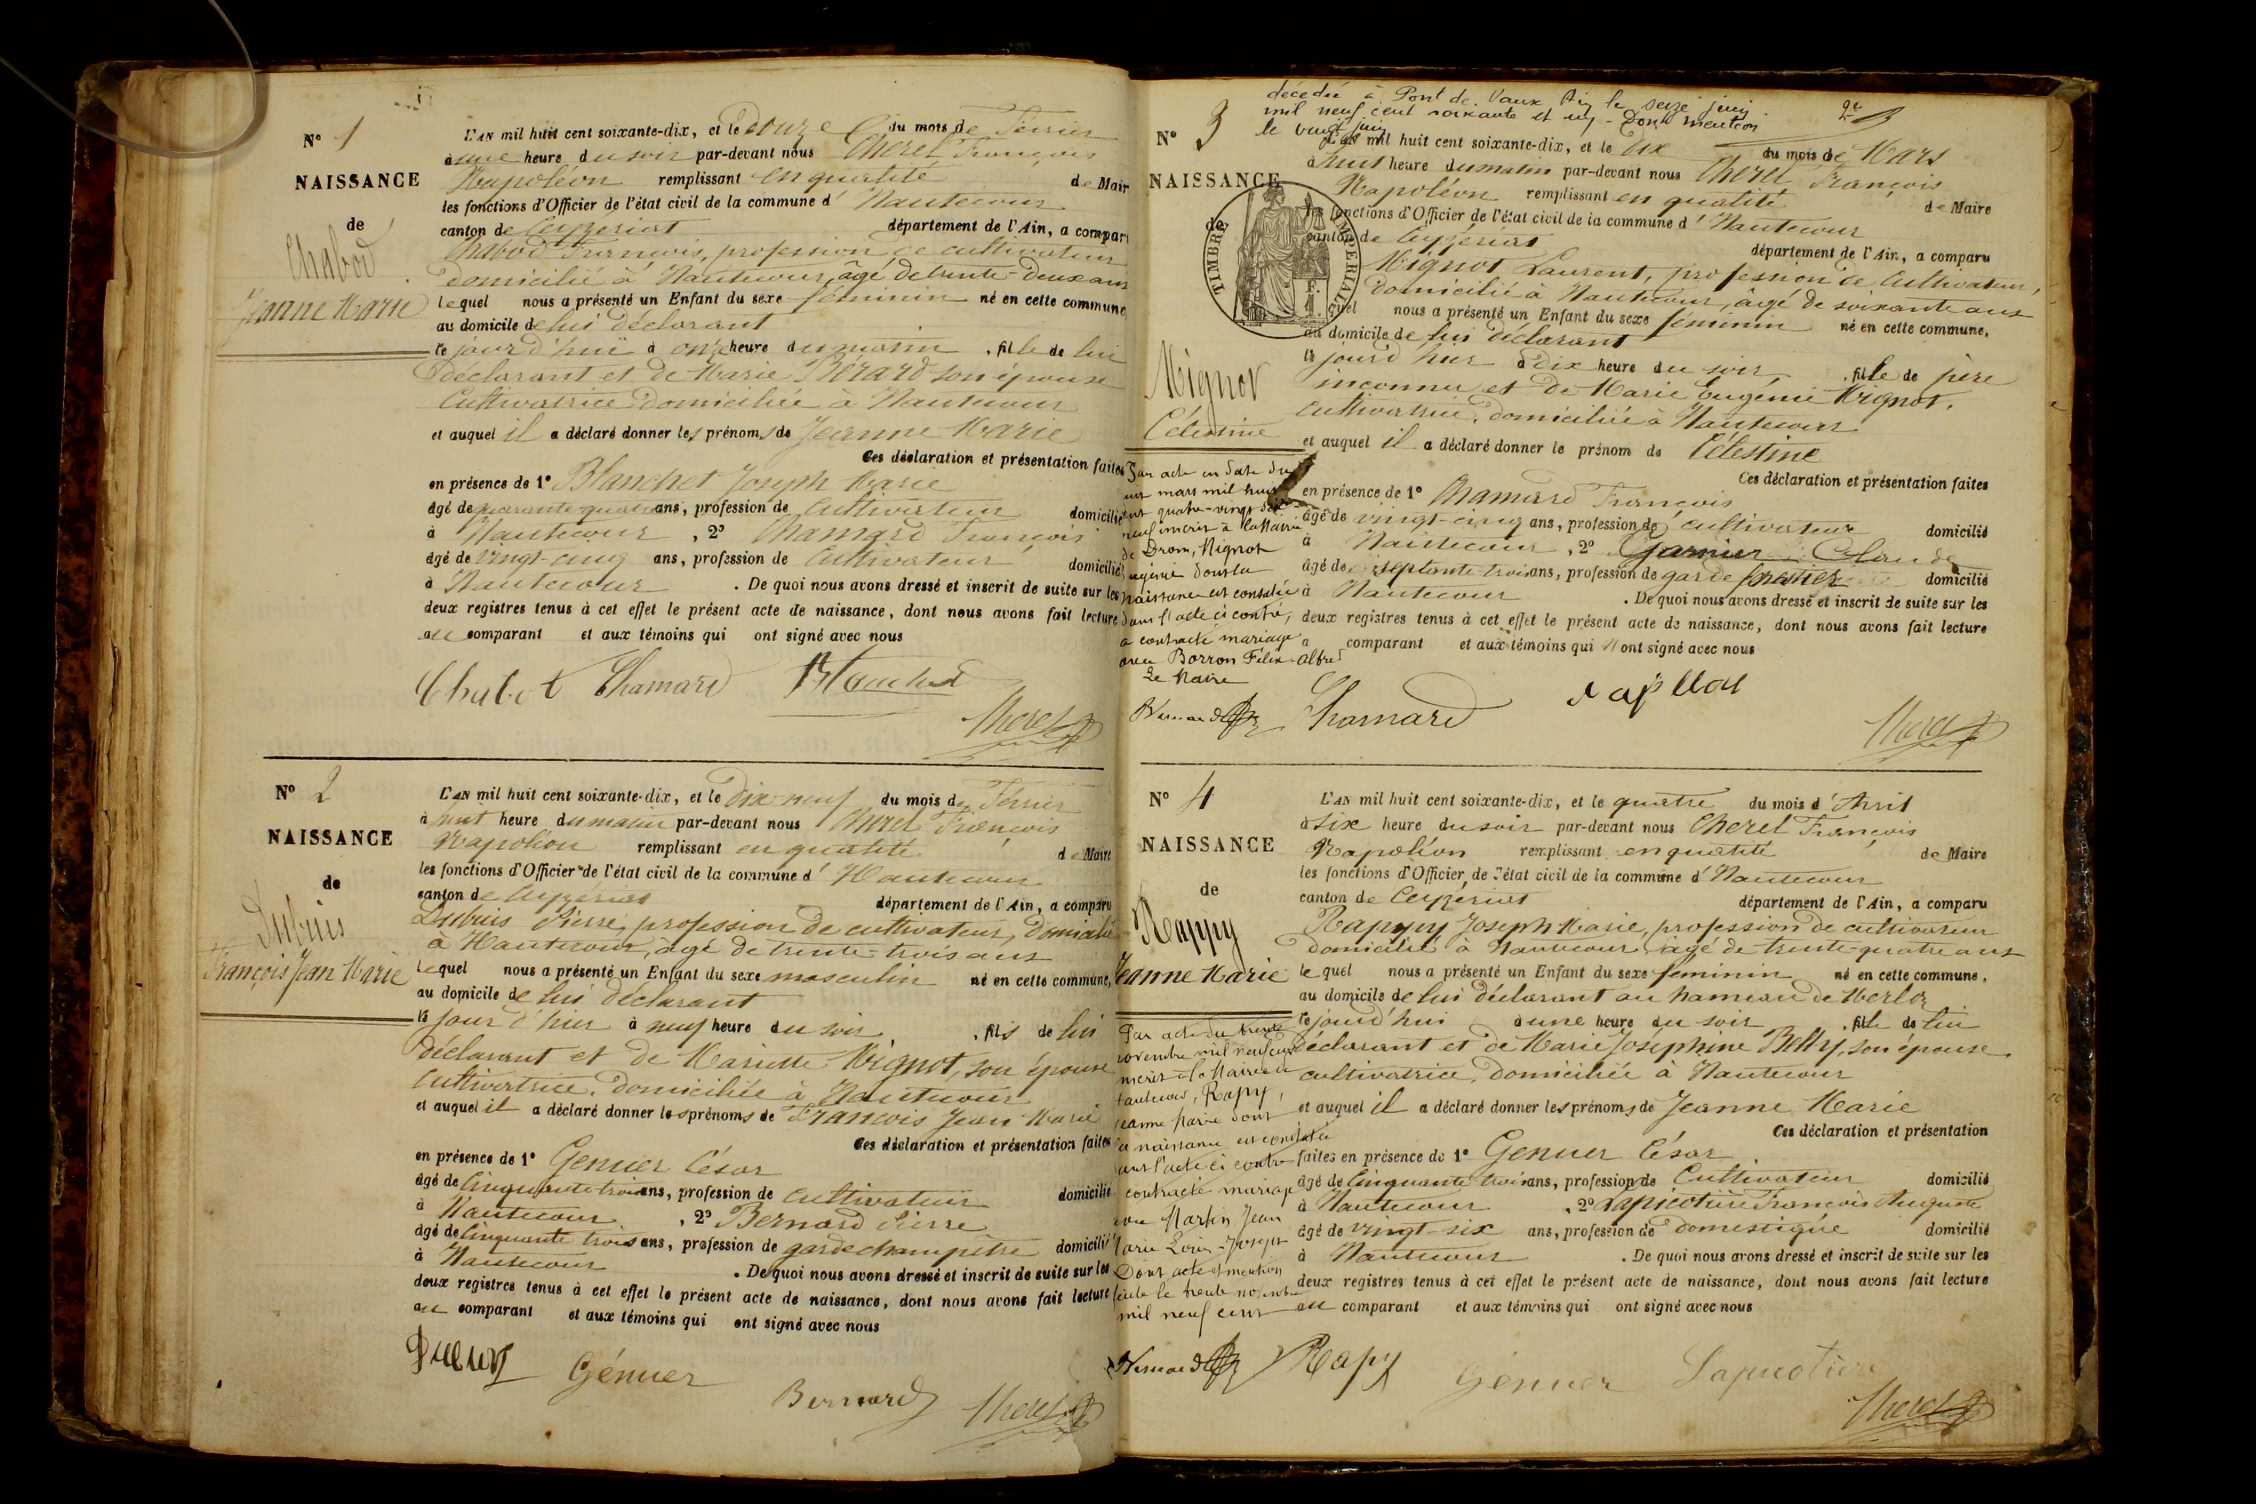 N° 1
NAISSANCE
de
Chabod
Jeanne Marie
L'AN mil huit cent soixante-dix, et le douze du mois de Février
à une heure du soir par-devant nous Cherel François
Napoléon remplissant en qualité de Mair
les fonctions d'Officier de l'état civil de la commune d' Hautecour
canton de Ceyzériat département de l'Ain, a compar
Chabod François, profession de cultivateur
domicilié à Hautecour, âgé de trente-deux ans
lequel nous a présenté un Enfant du sexe féminin né en cette commune,
au domicile de lui déclarant
le jour d'hui à onze heure du matin , fille de lui
déclarant et de Marie Bérard son épouse
Cultivatrice domiciliée à Hautecour
et auquel il a déclaré donner les prénoms de Jeanne Marie
Ces déclaration et présentation faites
en présence de 1° Blanchet Joseph Marie
âgé de quarante-quatre ans, profession de Cultivateur domicilié
à Hautecour , 2° Chamard François
âgé de vingt-cinq ans, profession de Cultivateur domicilié
à Hautecour . De quoi nous avons dressé et inscrit de suite sur les
deux registres tenus à cet effet le présent acte de naissance, dont nous avons fait lecture
au comparant et aux témoins qui ont signé avec nous
Chabot Chamard Blanchet
Cherel
N° 2
NAISSANCE
de
Dubuis
François Jean Marie
L'AN mil huit cent soixante-dix, et le dix-neuf du mois de Février
à huit heure du matin par-devant nous Cherel François
Napoléon remplissant en qualité de Maire
les fonctions d'Officier de l'état civil de la commune d' Hautecour
canton de Ceyzériat département de l'Ain, a comparu
Dubuis Pierre, profession de cultivateur, domicilié
à Hautecour, âgé de trente-trois ans
lequel nous a présenté un Enfant du sexe masculin né en cette commune,
au domicile de lui déclarant
le jour d'hier à neuf heure du soir , fils de lui
déclarant et de Mariette Mignot, son épouse
Cultivatrice, domiciliée à Hautecour
et auquel il a déclaré donner les prénoms de François Jean Marie
Ces déclaration et présentation faites
en présence de 1° Genuer César
âgé de Cinquante trois ans, profession de Cultivateur domicilié
à Hautecour , 2° Bernard Pierre
âgé de Cinquante trois ans, profession de garde champêtre domicilié
à Hautecour . De quoi nous avons dressé et inscrit de suite sur les
deux registres tenus à cet effet le présent acte de naissance, dont nous avons fait lecture
au comparant et aux témoins qui ont signé avec nous
Génuer
Bernard Cherel
décédée à Pont de Vaux Ain le seize juin
mil neuf cent soixante et un - Dont mention
le vingt juin
N° 3
NAISSANCE
de
TIMBRE IMPERIAL
Mignot
Célestine
L'AN mil huit cent soixante-dix, et le dix du mois de Mars
à huit heure du matin par-devant nous Cherel François
Napoléon remplissant en qualité de Maire
les fonctions d'Officier de l'état civil de la commune d' Hautecour
canton de Ceyzériat département de l'Ain, a comparu
Mignot Laurent, profession de Cultivateur,
domicilié à Hautecour, âgé de soixante ans
lequel nous a présenté un Enfant du sexe féminin né en cette commune,
au domicile de lui déclarant
le jour d'hier à dix heure du soir , fille de père
inconnu et de Marie Eugénie Mignot,
cultivatrice, domiciliée à Hautecour
et auquel il a déclaré donner le prénom de Célestine
Ces déclaration et présentation faites
en présence de 1° Chamard François
âgé de vingt-cinq ans, profession de cultivateur domicilié
à Hautecour , 2° Garnier Claude
âgé de septante-trois ans, profession de garde forestier domicilié
à Hautecour . De quoi nous avons dressé et inscrit de suite sur les
deux registres tenus à cet effet le présent acte de naissance, dont nous avons fait lecture
a comparant et aux témoins qui ont signé avec nous
Par acte en date du
mars mil huit
cent quatre-vingt dix
neuf inscrit à la Mairie
de Drom, Mignot
dont la
naissance est constatée
dans l'acte ci contre,
a contracté mariage
avec Borron Félix-Alfred
Le Maire
Bernard
Chamard
Cherel
N° 4
NAISSANCE
de
Rappy
Jeanne Marie
L'AN mil huit cent soixante-dix, et le quatre du mois d' Avril
à six heure du soir par-devant nous Cherel François
Napoléon remplissant en qualité de Maire
les fonctions d'Officier de l'état civil de la commune d' Hautecour
canton de Ceyzériat département de l'Ain, a comparu
Rappy Joseph Marie, profession de cultivateur
domicilié à Hautecour âgé de trente-quatre ans
le quel nous a présenté un Enfant du sexe féminin né en cette commune,
au domicile de lui déclarant au hameau de Merloz
le jourd'hui à une heure du soir , fille de lui
déclarant et de Marie Joséphine Belly, son épouse
cultivatrice, domiciliée à Hautecour
et auquel il a déclaré donner les prénoms de Jeanne Marie
Ces déclaration et présentation
faites en présence de 1° Genuer César
âgé de Cinquante trois ans, profession de Cultivateur domicilié
à Hautecour , 2° Lapicotière François Auguste
âgé de vingt-six ans, profession de domestique domicilié
à Hautecour . De quoi nous avons dressé et inscrit de suite sur les
deux registres tenus à cet effet le présent acte de naissance, dont nous avons fait lecture
au comparant et aux témoins qui ont signé avec nous
Par acte du trente
novembre mil neuf cent
inscrit à la Mairie de
Hautecour, Rapy,
Jeanne Marie dont
la naissance est constatée
dans l'acte ci contre
a contracté mariage
avec Martin Jean
Marie Louis-Joseph
Dont acte et mention
faite le trente novembre
mil neuf cent
Bernard Rapy Génuer Lapicotière
Cherel